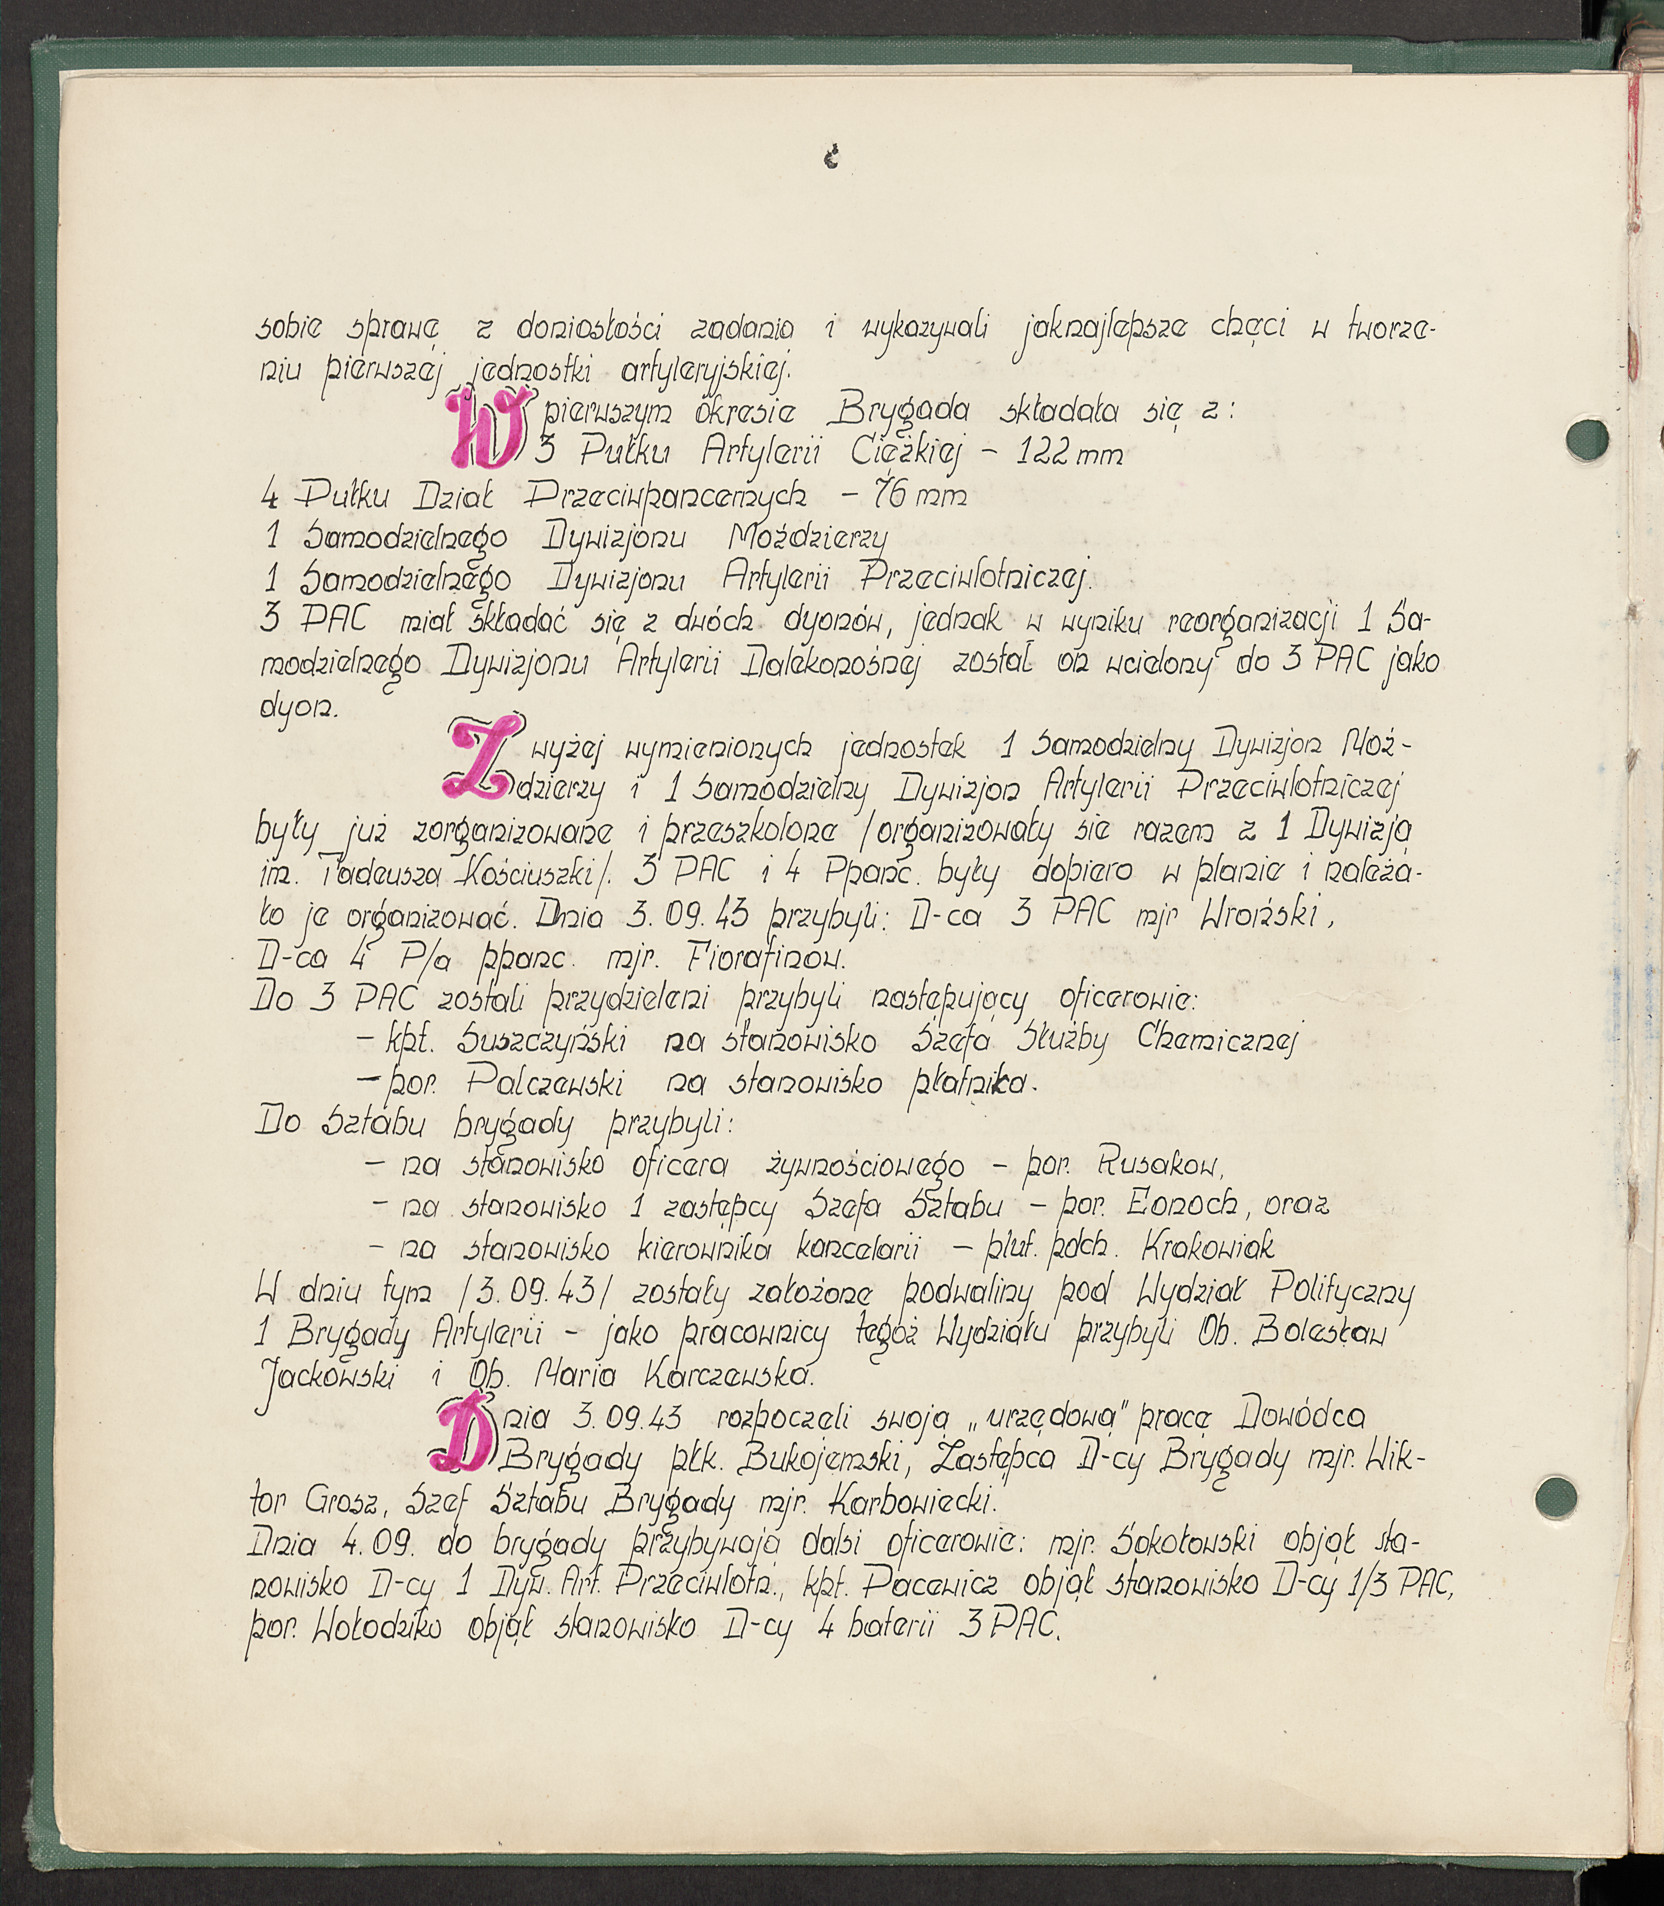 sobie sprawę z doniosłości zadania i wykazywali jaknajlepsze chęci w tworze-
niu pierwszej jednostki artyleryjskiej.
W pierwszym okresie Brygada składała się z:
3 Pułku Artylerii Ciężkiej – 122 mm
4 Pułku Dział Przeciwpancernych – 76 mm
1 Samodzielnego Dywizjonu Moździerzy
1 Samodzielnego Dywizjonu Artylerii Przeciwlotniczej.
3 PAC miał składać się z dwóch dyonów, jednak w wyniku reorganizacji 1 Sa-
modzielnego Dywizjonu Artylerii Dalekonośnej został on wcielony do 3 PAC jako
dyon.
Z wyżej wymienionych jednostek 1 Samodzielny Dywizjon Moź-
dzierzy i 1 Samodzielny Dywizjon Artylerii Przeciwlotniczej
były już zorganizowane i przeszkolone /organizowały sie razem z 1 Dywizją
im. Tadeusza Kościuszki/. 3 PAC i 4 Ppanc. były dopiero w planie i należa-
ło je organizować. Dnia 3.09.43 przybyli: D-ca 3 PAC mjr Wroński,
D-ca 4 P/a ppanc. mjr. Fiorafinow.
Do 3 PAC zostali przydzieleni przybyli następujący oficerowie:
– kpt. Suszczyński na stanowisko Szefa Służby Chemicznej
– por. Palczewski na stanowisko płatnika.
Do Sztabu brygady przybyli:
– na stanowisko oficera żywnościowego – por. Rusakow,
– na stanowisko 1 zastępcy Szefa Sztabu – por. Eonoch, oraz
– na stanowisko kierownika kancelarii – plut. pdch. Krakowiak
W dniu tym /3.09.43/ zostały założone podwaliny pod Wydział Polityczny
1 Brygady Artylerii – jako pracownicy tegoż Wydziału przybyli Ob. Bolesław
Jackowski i Ob. Maria Karczewska.
Dnia 3.09.43 rozpoczęli swoją „urzędową" pracę Dowódca
Brygady płk. Bukojemski, Zastępca D-cy Brygady mjr. Wik-
tor Grosz, Szef Sztabu Brygady mjr. Karbowiecki.
Dnia 4.09. do brygady przybywają dalsi oficerowie: mjr. Sokołowski objął sta-
nowisko D-cy 1 Dyw. Art. Przeciwlotn., kpt. Pacewicz objął stanowisko D-cy 1/3 PAC,
por. Wołodźko objął stanowisko D-cy 4 baterii 3 PAC.